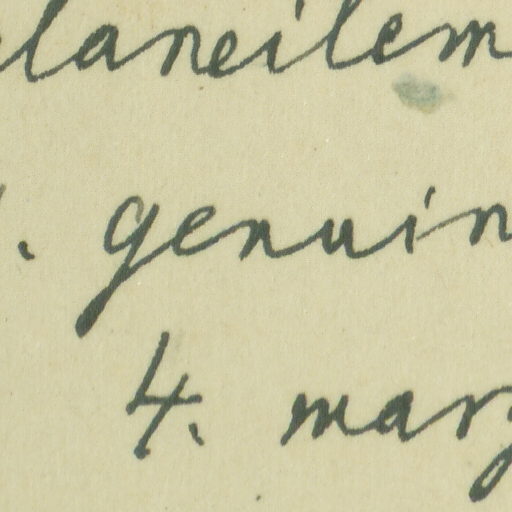 laneilem
. genuin
4. marg